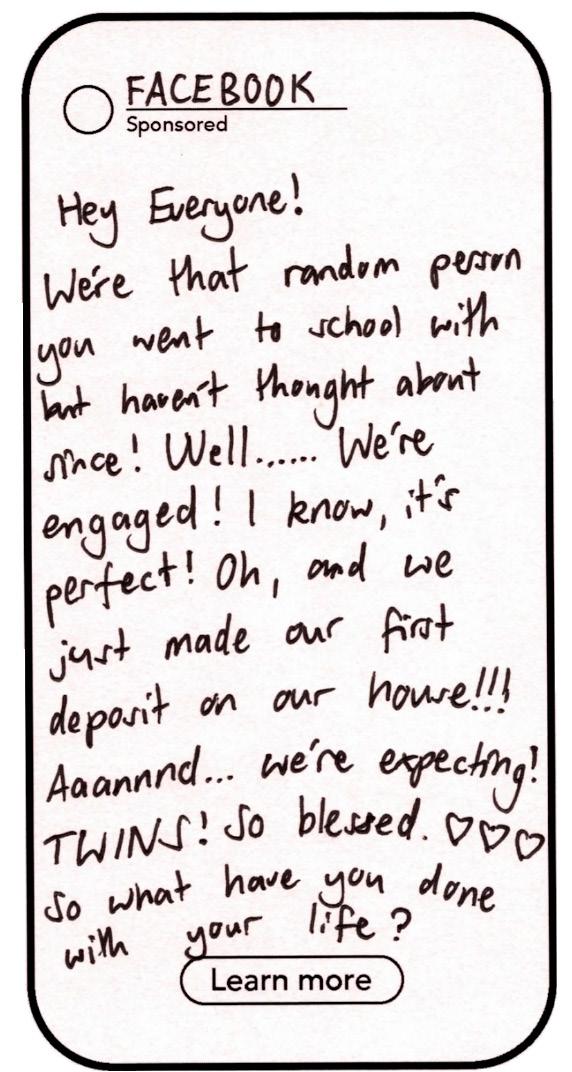 FACEBOOK
Sponsored
Hey Everyone!
We're that random person
you went to school with
but haven't thought about
since! Well...... We're
engaged! I know, it's
perfect! Oh, and we
just made our first
deposit on our house!!!
Aaannnd... we're expecting!
TWINS! So blessed. ♡♡♡
So what have you done
with your life?
Learn more